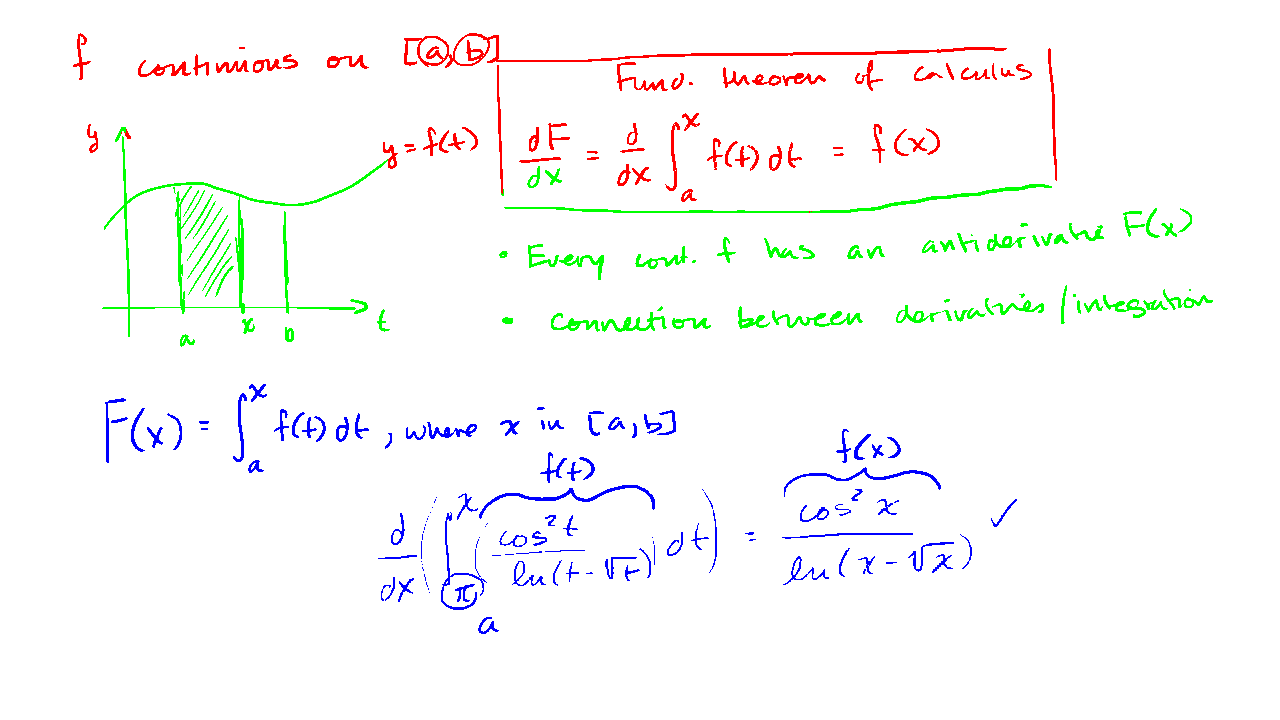 f continuous on [a,b]
Fund. theorem of calculus
dF/dx = d/dx ∫_a^x f(t) dt = f(x)
y
y = f(t)
a x b t
• Every cont. f has an antiderivative F(x)
• connection between derivatives/integration
F(x) = ∫_a^x f(t) dt, where x in [a,b]
f(t) f(x)
d/dx (∫_π^x (cos² t / ln(t-√t)) dt) = cos² x / ln(x-√x) ✓
a